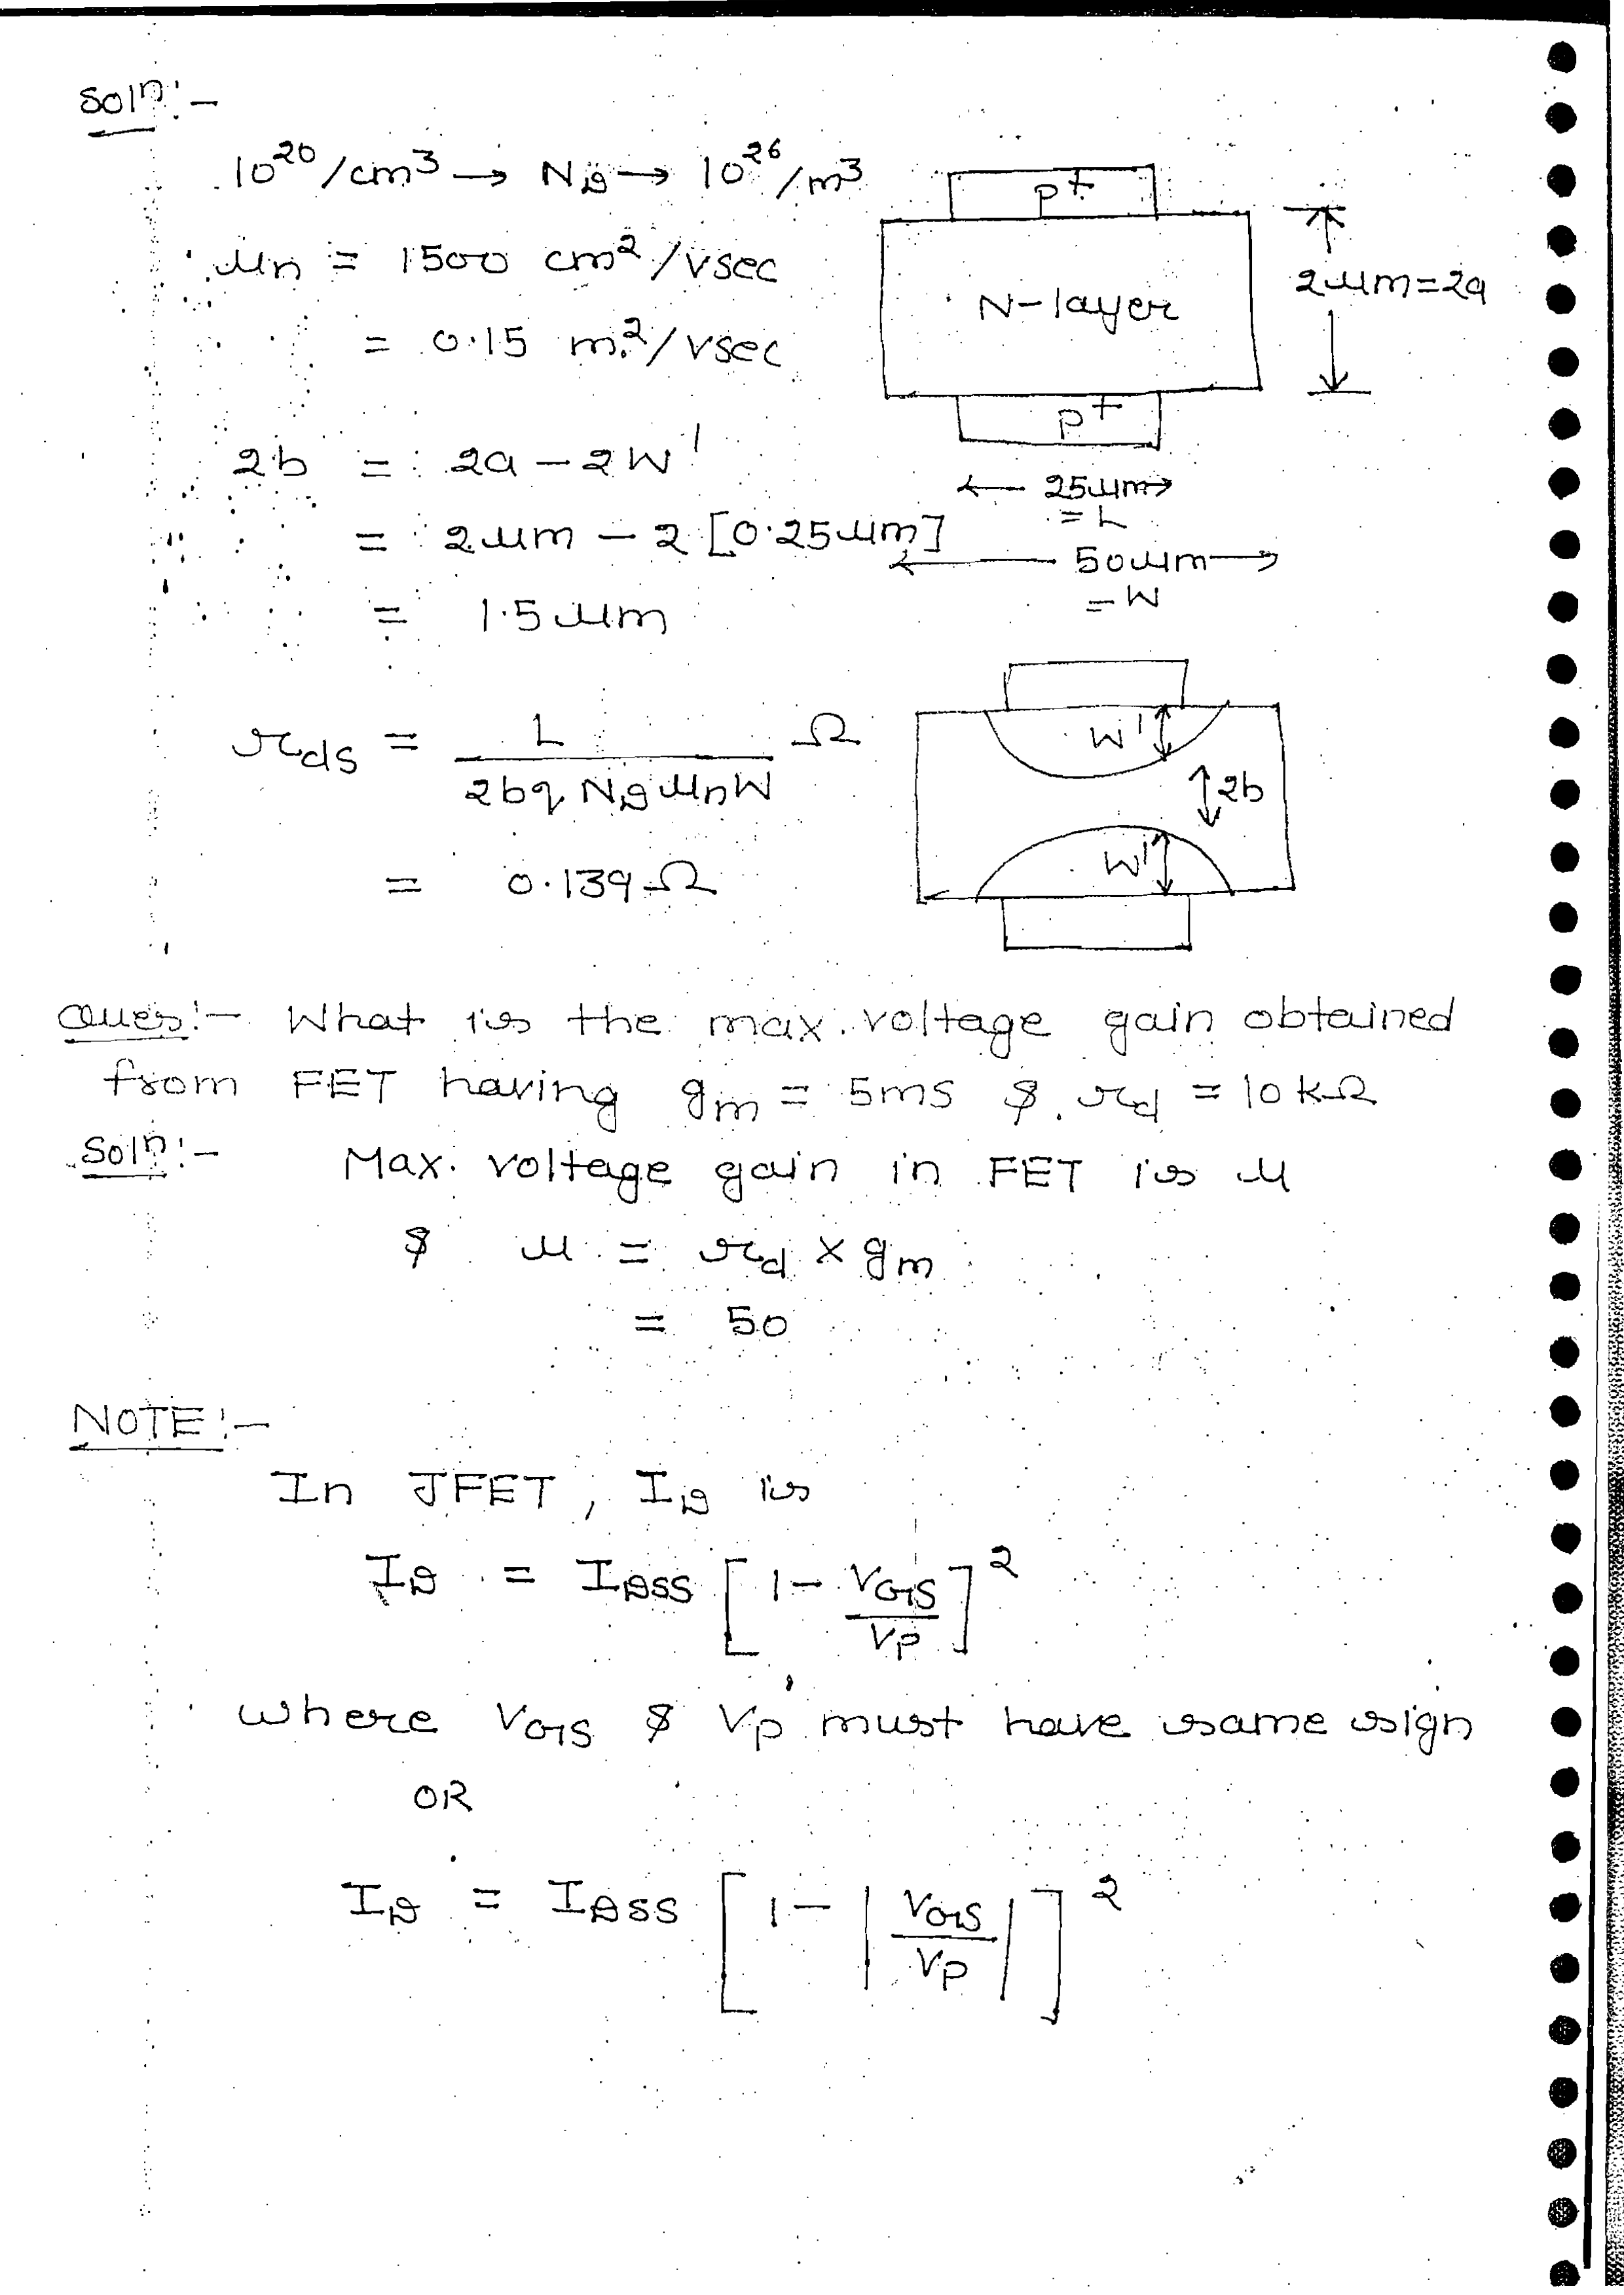 Soln:-
10^20/cm^3 → N_D → 10^26/m^3
μn = 1500 cm^2/vsec
= 0.15 m^2/vsec
P+
N-layer
2μm=2a
P+
25μm
= L
50μm
= W
2b = 2a - 2W'
= 2μm - 2[0.25μm]
= 1.5μm
r_ds = L / (2bq N_D μn W) Ω
= 0.139Ω
W'
2b
W'
Ques:- What is the max. voltage gain obtained
from FET having gm = 5ms & rd = 10kΩ
Soln:- Max. voltage gain in FET is μ
& μ = rd × gm
= 50
NOTE:-
In JFET, I_D is
I_D = I_DSS [1 - V_GS/V_P]^2
where V_GS & V_P must have same sign
OR
I_D = I_DSS [1 - |V_GS/V_P|]^2